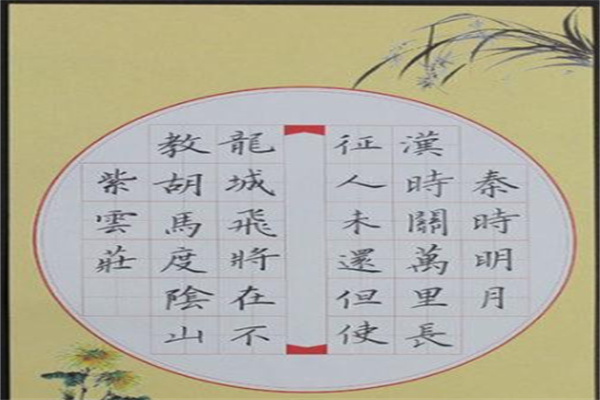 秦時明月
漢時關萬里長
征人未還但使
龍城飛將在不
教胡馬度陰山
紫雲莊